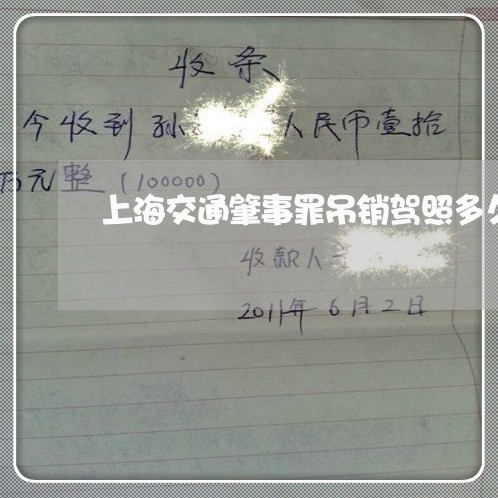 收条
今收到孙 人民币壹拾
万元整(100000)
上海交通肇事罪吊销驾照多
收款人
2011年6月2日